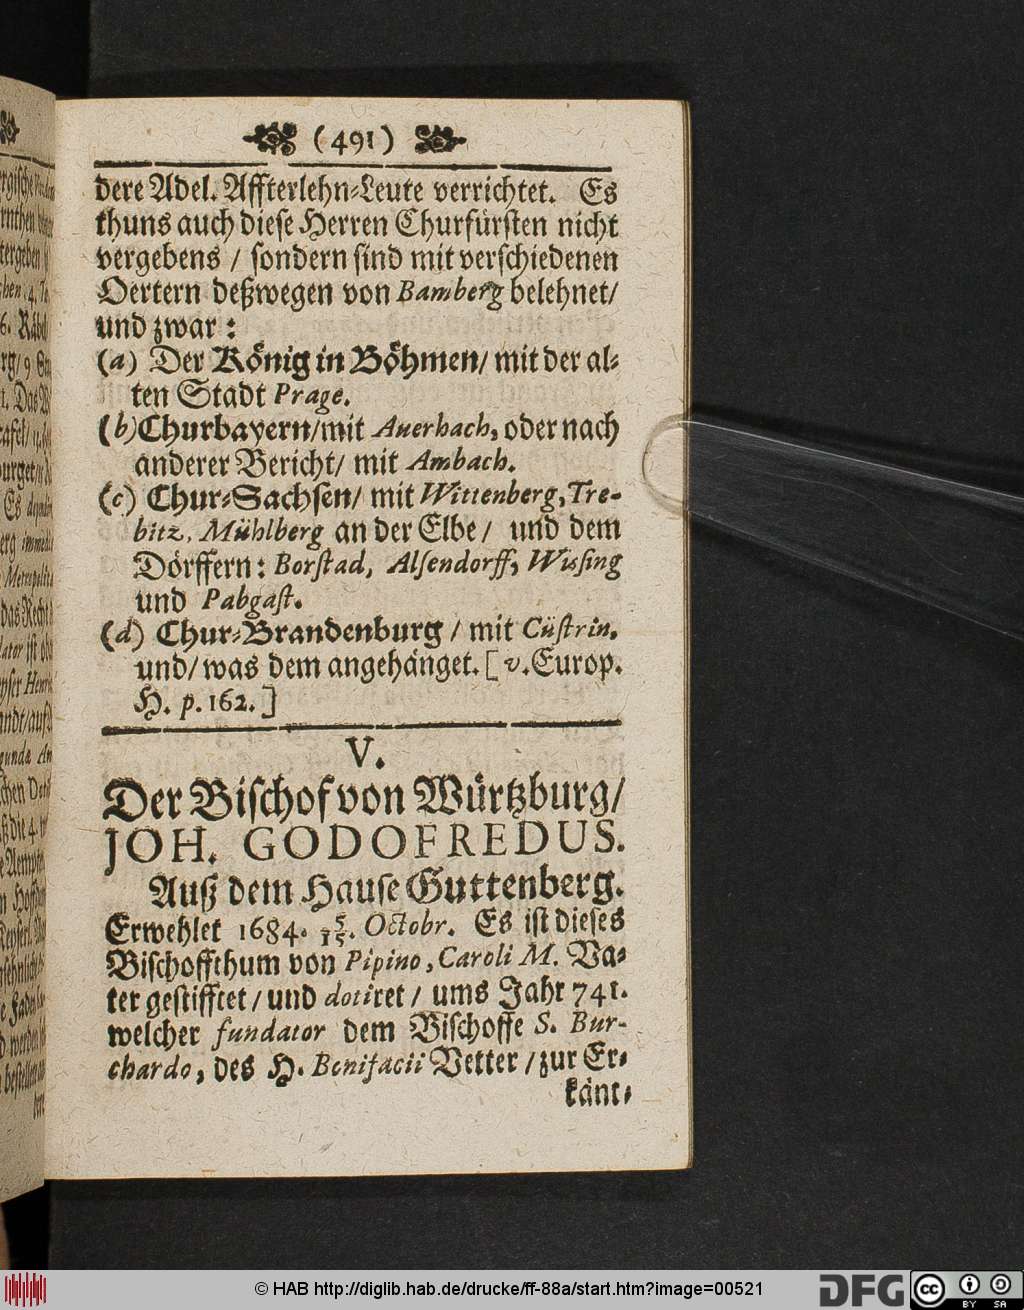 (491)
dere Adel. Affterlehn-Leute verrichtet. Es
thuns auch diese Herren Churfürsten nicht
vergebens / sondern sind mit verschiedenen
Oertern deßwegen von Bamberg belehnet/
und zwar:
(a) Der König in Böhmen/ mit der al-
ten Stadt Prage.
(b) Churbayern/mit Auerbach, oder nach
anderer Bericht/ mit Ambach.
(c) Chur-Sachsen/ mit Wittenberg, Tre-
bitz, Mühlberg an der Elbe / und dem
Dörffern: Borstad, Alsendorff, Wüsing
und Pabgast.
(d) Chur-Brandenburg / mit Cüstrin,
und/ was dem angehänget. [ v. Europ.
H. p. 162. ]
V.
Der Bischof von Würtzburg/
JOH. GODOFREDUS.
Auß dem Hause Guttenberg.
Erwehlet 1684. 5/15. Octobr. Es ist dieses
Bischoffthum von Pipino, Caroli M. Va-
ter gestifftet / und dotiret / ums Jahr 741.
welcher fundator dem Bischoffe S. Bur-
chardo, des H. Bonifacii Vetter / zur Er-
känt-
© HAB http://diglib.hab.de/drucke/ff-88a/start.htm?image=00521
DFG
cc
BY SA